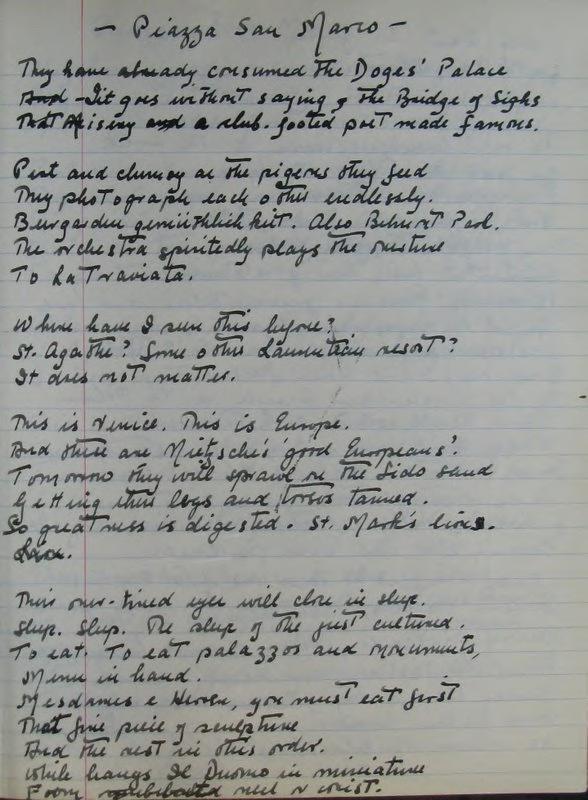 — Piazza San Marco —
They have already consumed the Doges' Palace
And - It goes without saying, the Bridge of Sighs
That a club-footed poet made famous.
Pert and clumsy as the pigeons they feed
They photograph each other endlessly.
Biergarden gemütlichkeit. Also
The orchestra spiritedly plays the overture
To La Traviata.
Where have I seen this before?
St. Agathe? Some other Laurentian resort?
It does not matter.
This is Venice. This is Europe.
And these are Nietzsche's 'good Europeans'.
Tomorrow they will sprawl on the Lido sand
Getting their legs and torsos tanned.
So greatness is digested. St. Mark's lions.
Their over-tired eyes will close in sleep.
Sleep. Sleep. The sleep of the just cultured.
To eat. To eat palazzos and monuments,
Menu in hand.
Mesdames e Herren, you must eat first
That fine piece of sculpture
And the rest in this order.
While hangs Il Duomo in miniature
From neck or wrist.